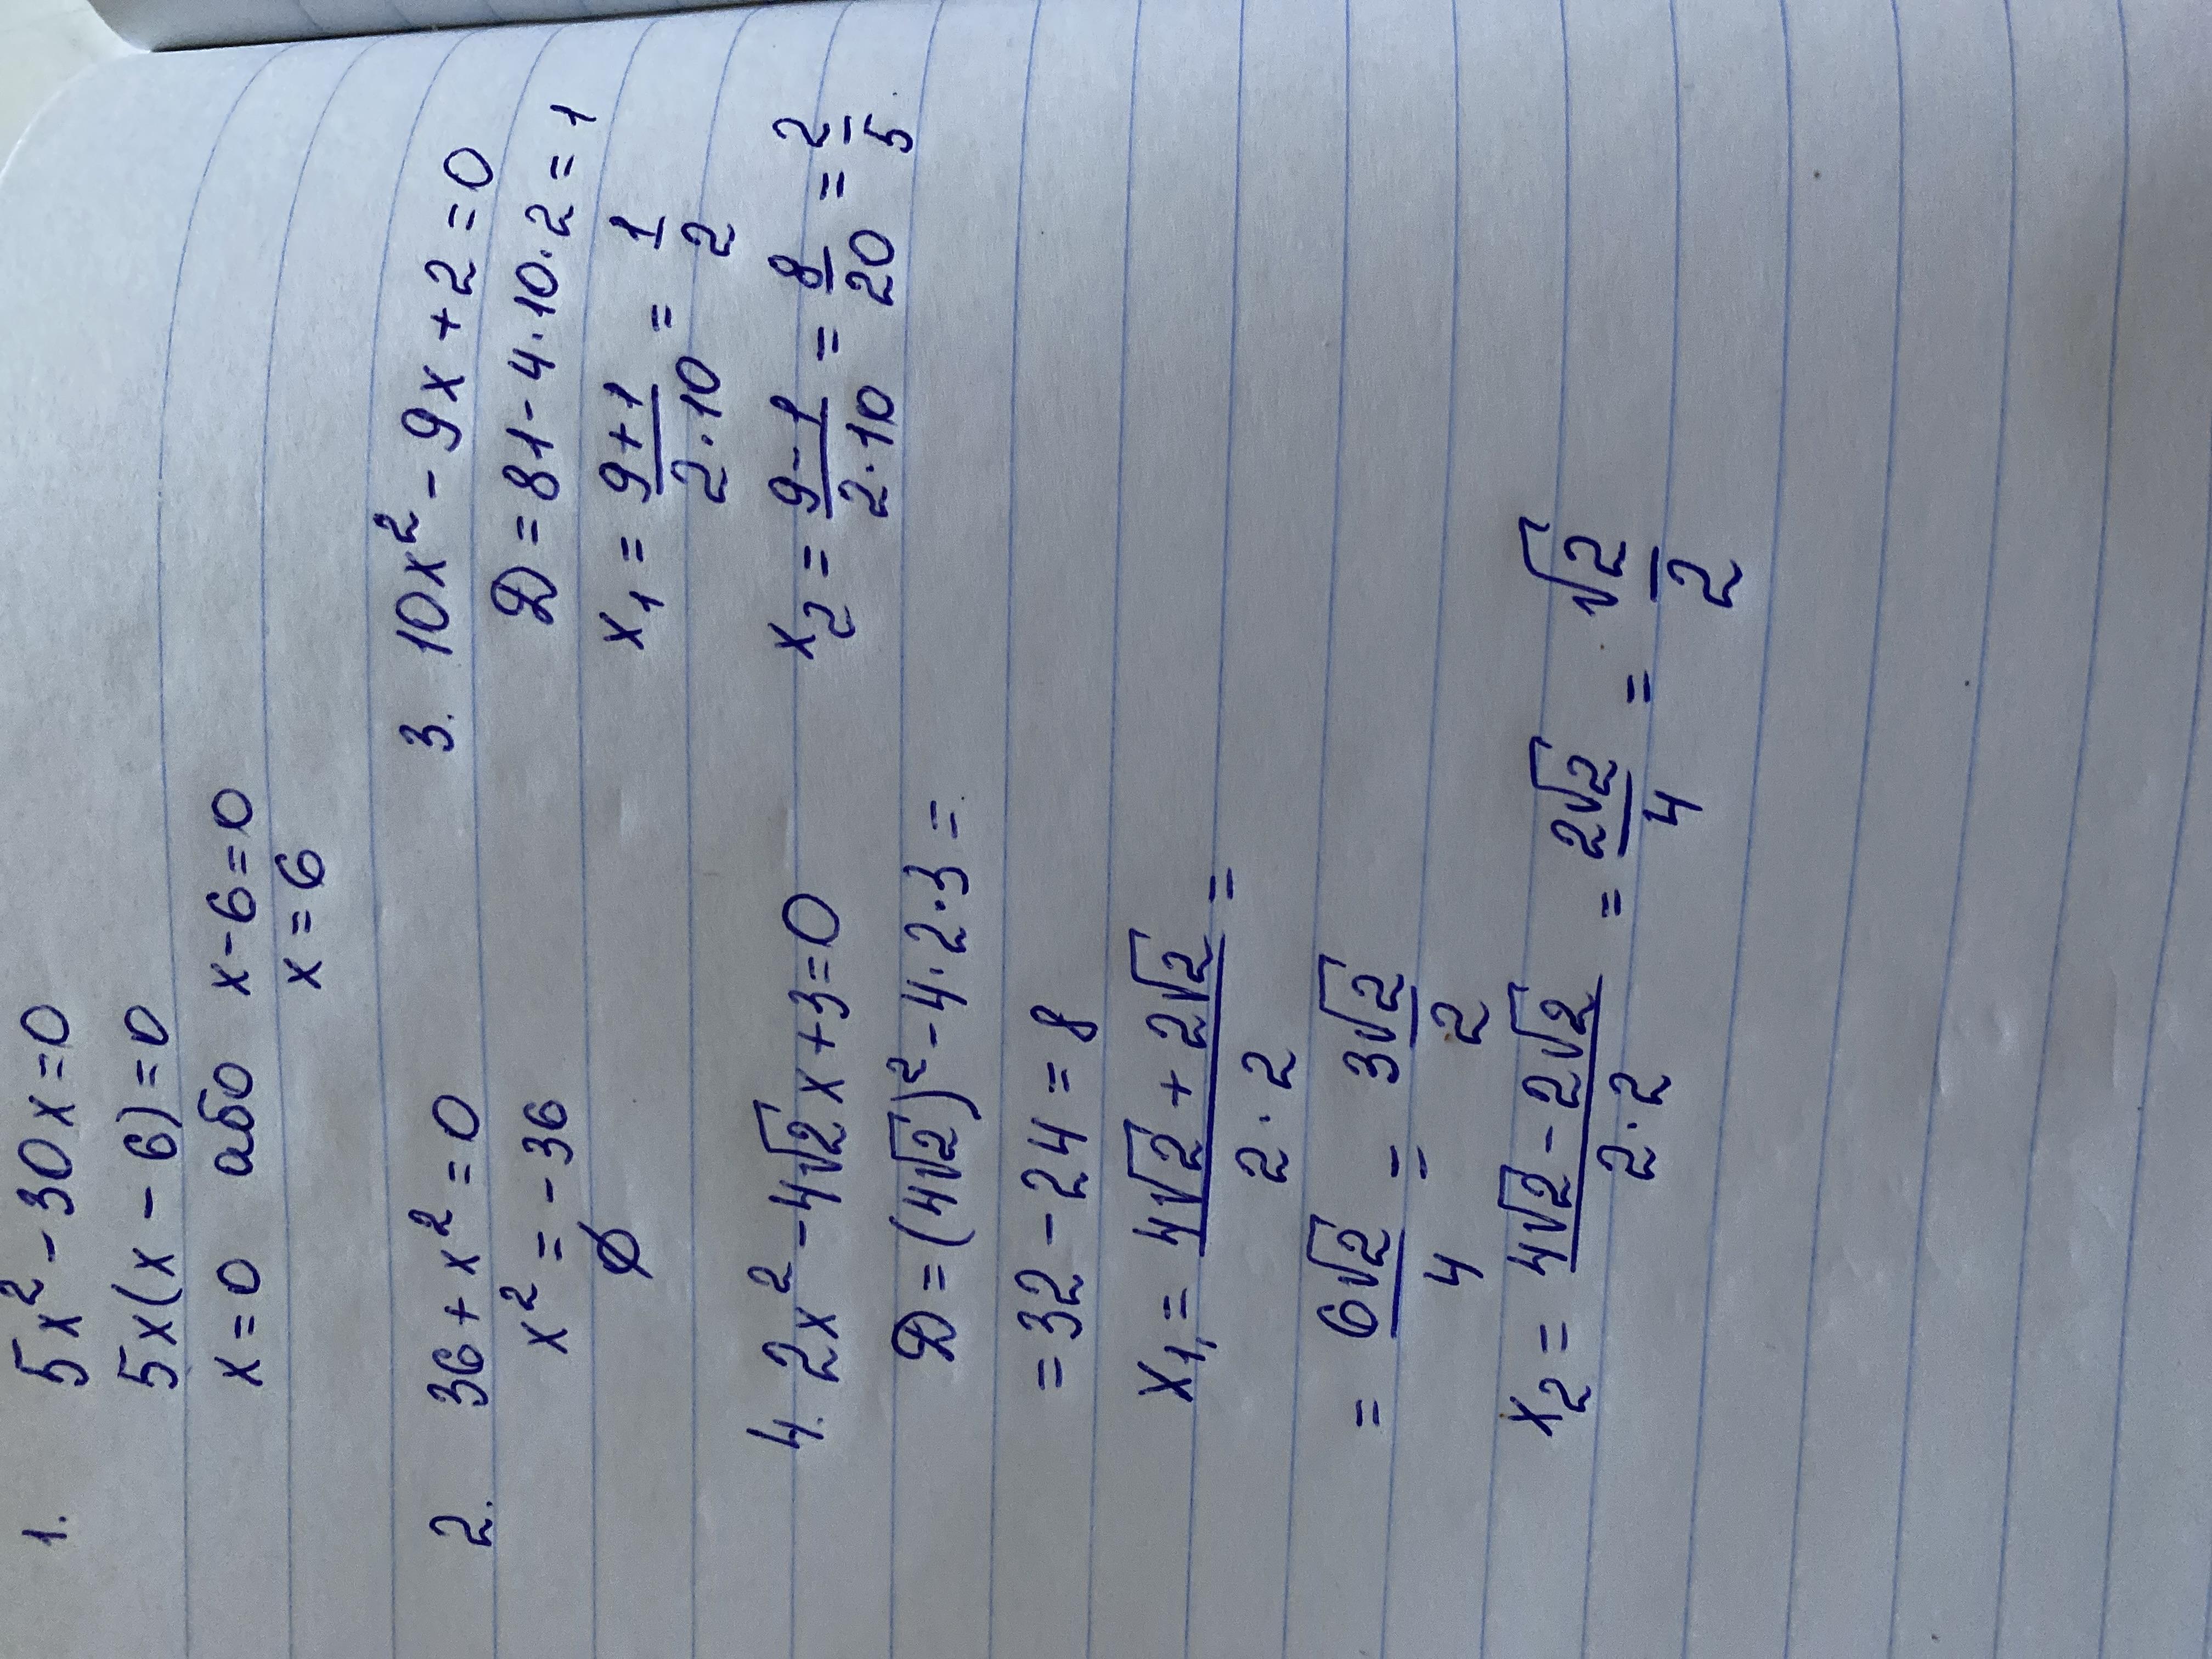 1. 5x² - 30x = 0
5x(x - 6) = 0
x = 0 або x - 6 = 0
x = 6
2. 36 + x² = 0
x² = -36
∅
3. 10x² - 9x + 2 = 0
D = 81 - 4 · 10 · 2 = 1
x₁ = (9+1)/(2·10) = 1/2
x₂ = (9-1)/(2·10) = 8/20 = 2/5
4. 2x² - 4√2x + 3 = 0
D = (4√2)² - 4 · 2 · 3 =
= 32 - 24 = 8
x₁ = (4√2 + 2√2)/(2 · 2) =
= 6√2/4 = 3√2/2
x₂ = (4√2 - 2√2)/(2·2) = 2√2/4 = √2/2